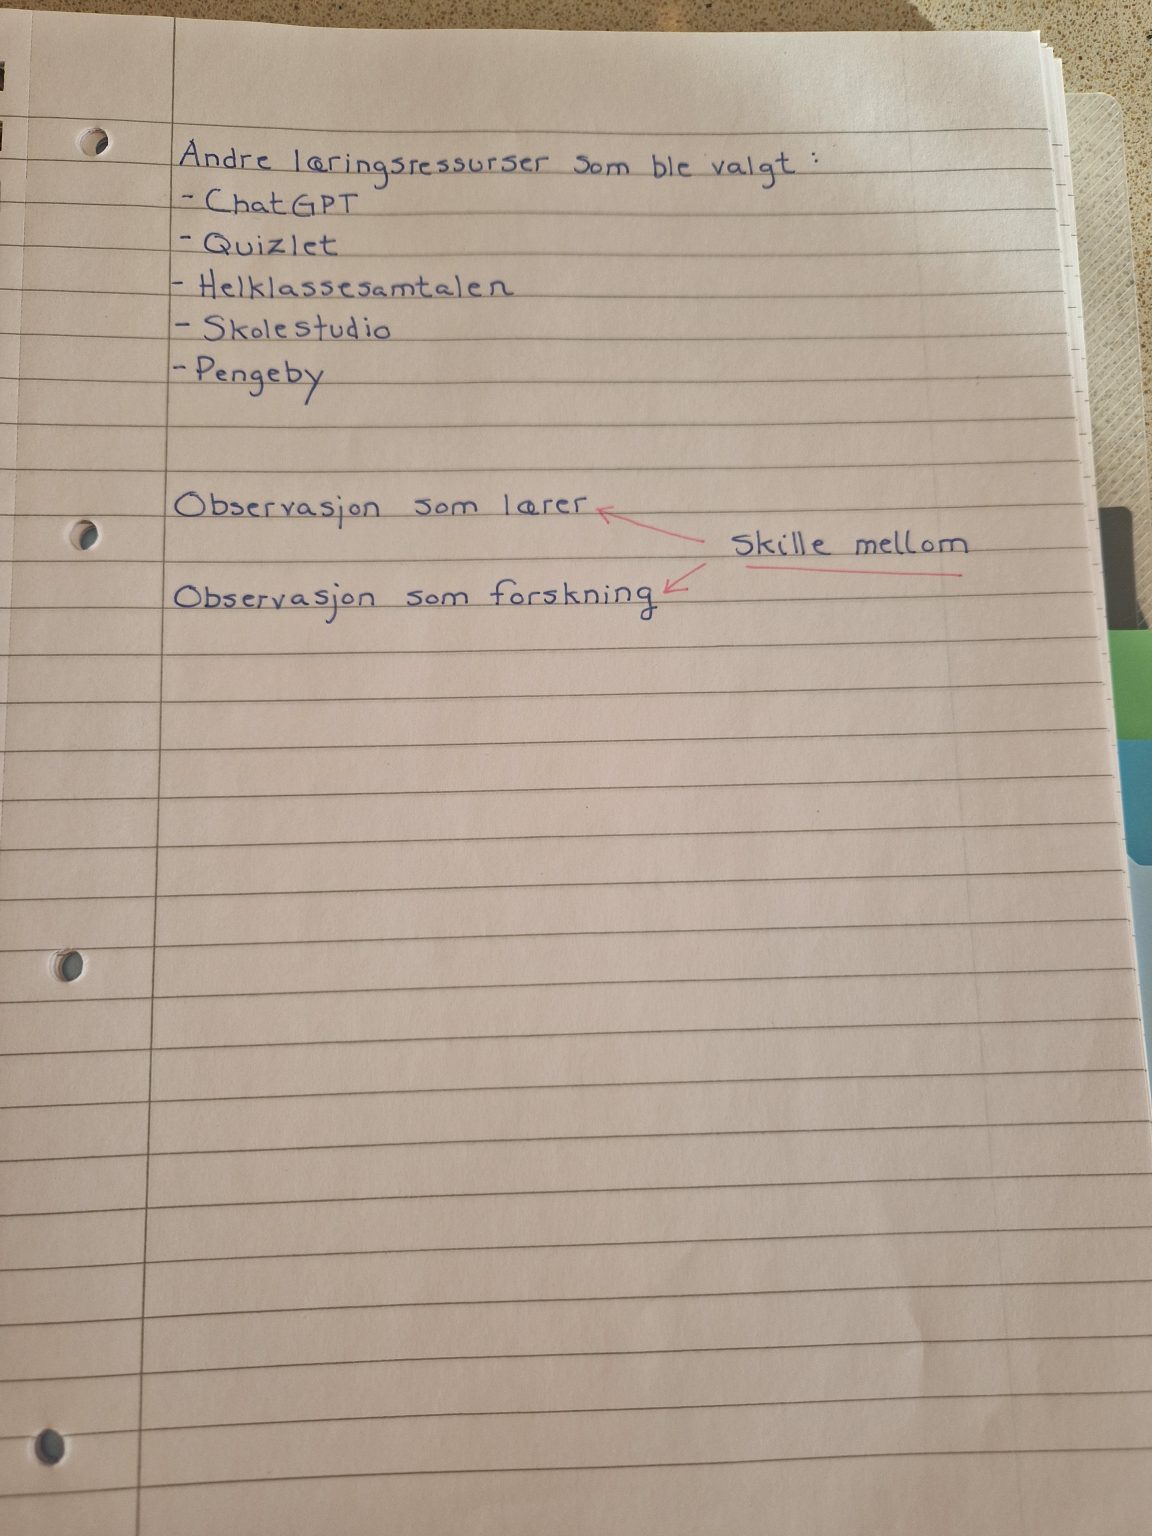 Andre læringsressurser som ble valgt :
- ChatGPT
- Quizlet
- Helklassesamtalen
- Skolestudio
- Pengeby
Observasjon som lærer
Skille mellom
Observasjon som forskning